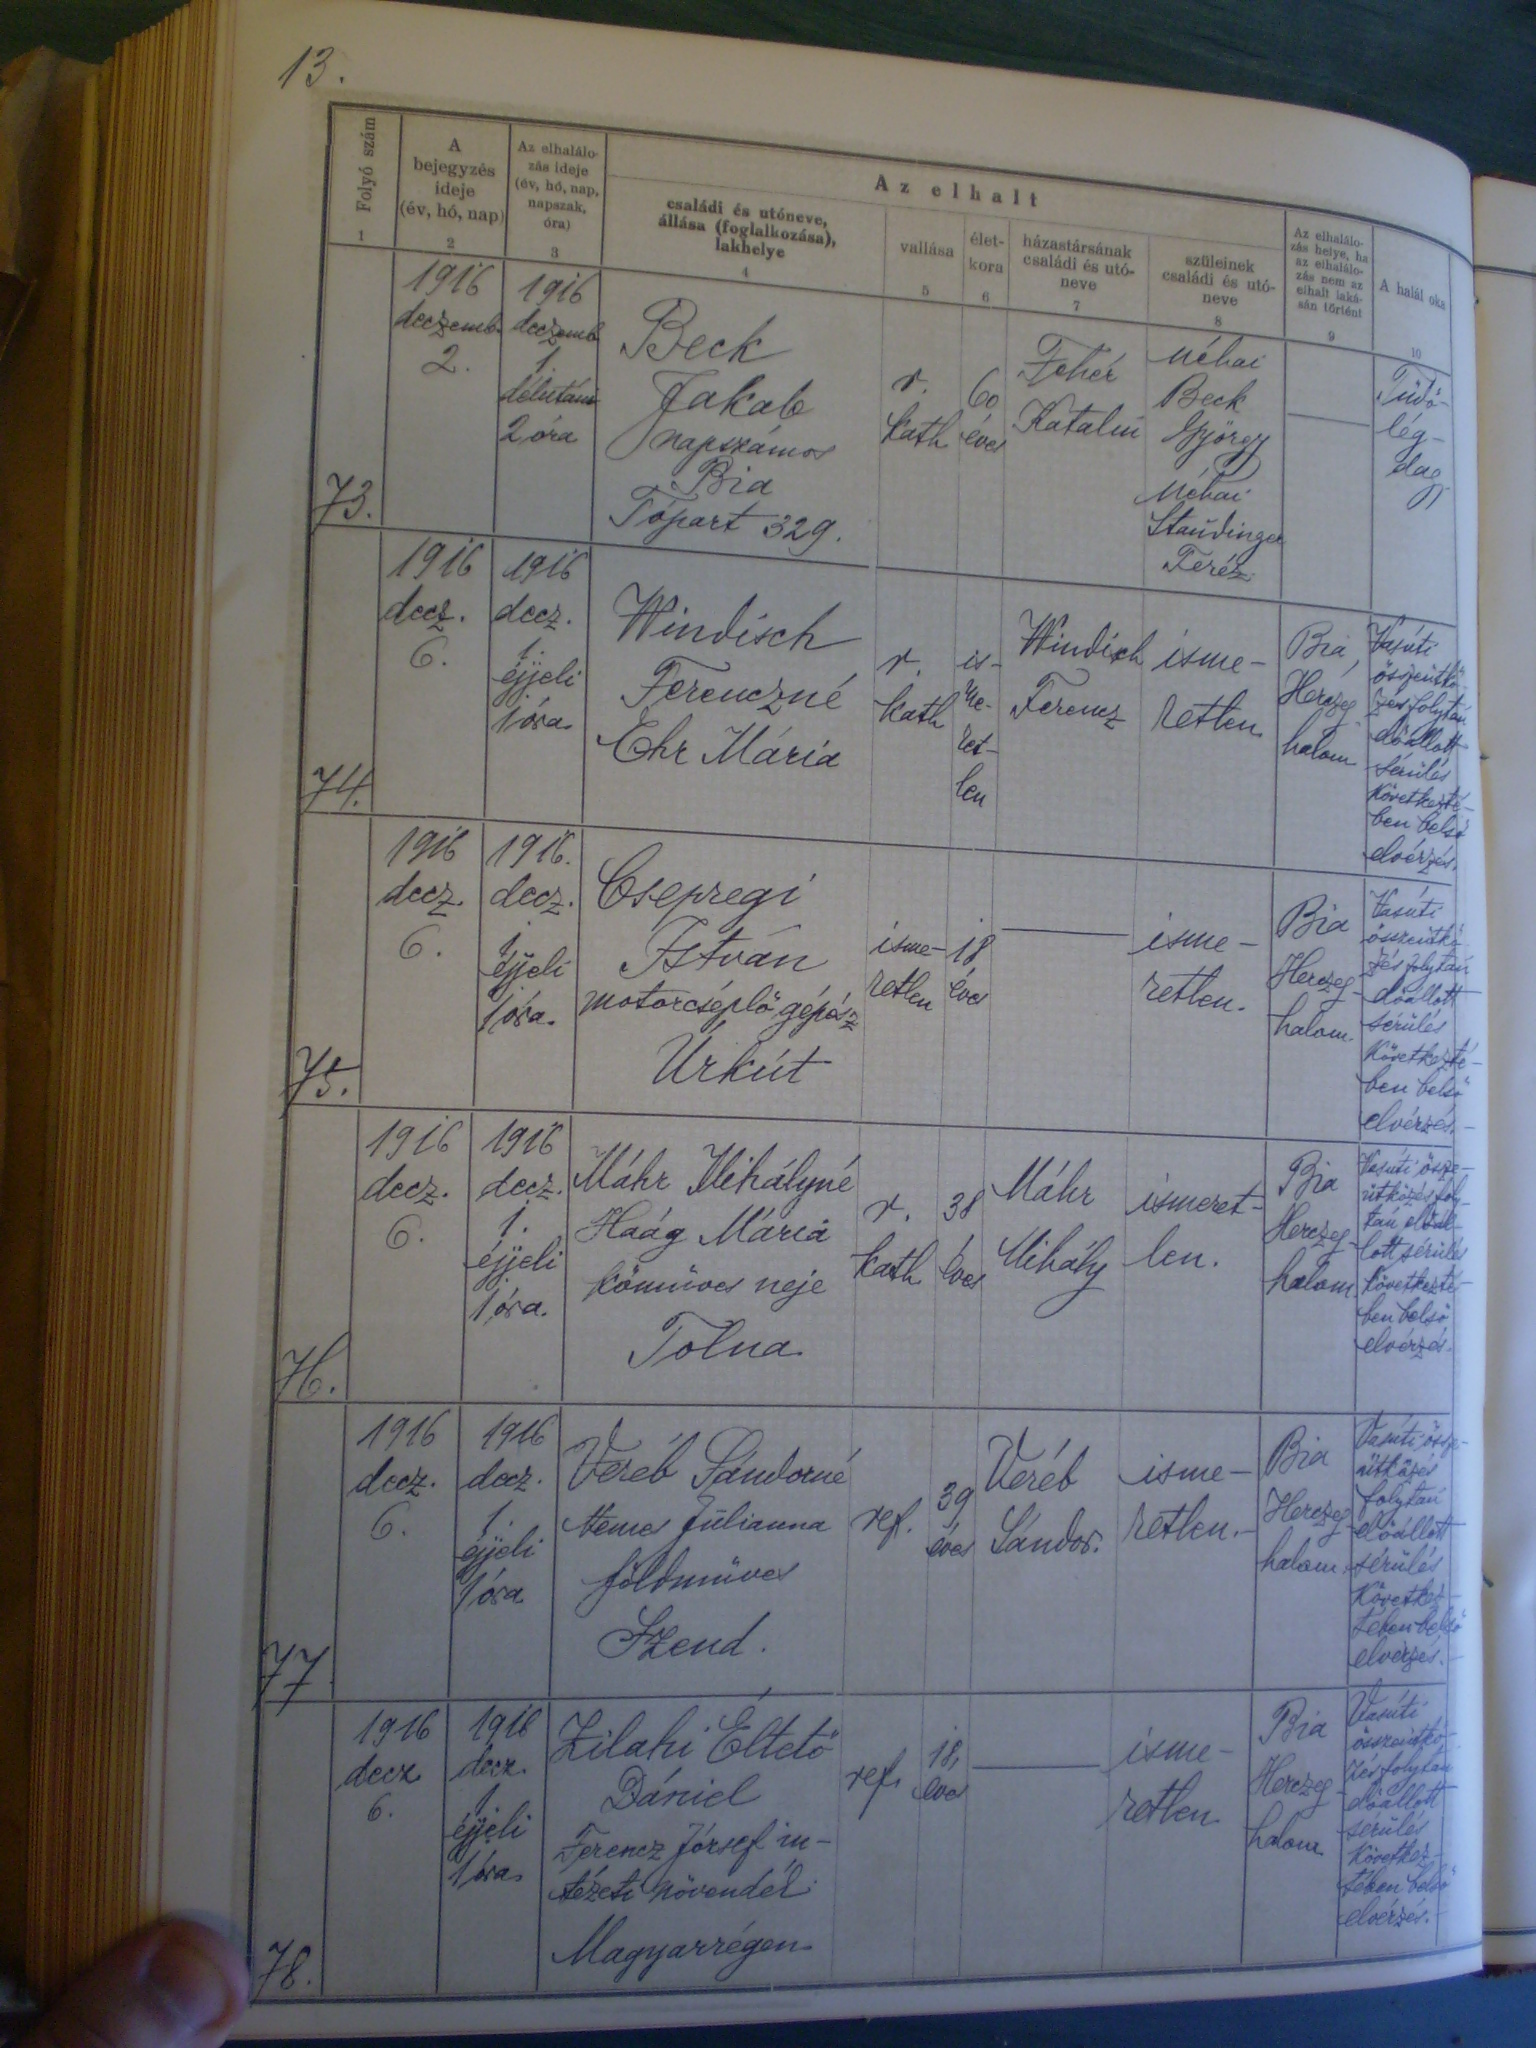 13.
Folyó szám
1
A
bejegyzés
ideje
(év, hó, nap)
2
Az elhalálo-
zás ideje
(év, hó, nap,
napszak,
óra)
3
Az elhalt
családi és utóneve,
állása (foglalkozása),
lakhelye
4
vallása
5
élet-
kora
6
házastársának
családi és utó-
neve
7
szüleinek
családi és utó-
neve
8
Az elhalálo-
zás helye, ha
az elhalálo-
zás nem az
elhalt laká-
sán történt
9
A halál oka
10
73.
1916
deczemb.
2.
1916
deczemb
1.
délutáni
2 óra
Beck
Jakab
napszámos
Bia
Tópart 329.
r.
kath
60
éves
Fehér
Katalin
Néhai
Beck
György
Néhai
Staudinger
Teréz
Tüdő-
lég-
dag
74.
1916
decz.
6.
1916
decz.
1.
éjjeli
1 óra
Windisch
Ferenczné
Ehr Mária
r.
kath
is-
me-
ret-
len
Windisch
Ferencz
isme-
retlen
Bia,
Herczeg-
halom
Vasúti
összeütkö-
zés folytán
előállott
sérülés
következté-
ben belső
elvérzés.
75.
1916
decz.
6.
1916.
decz.
1.
éjjeli
1 óra.
Csepregi
István
motorcséplő gépész
Úrkút
isme-
retlen
18
éves
isme-
retlen.
Bia
Herczeg-
halom.
Vasúti
összeütkö-
zés folytán
előállott
sérülés
következté-
ben belső
elvérzés.
76.
1916
decz.
6.
1916
decz.
1.
éjjeli
1 óra.
Máhr Mihályné
Haág Mária
kőműves neje
Tolna
r.
kath
38
éves
Máhr
Mihály
ismeret-
len.
Bia
Herczeg-
halom
Vasúti össze-
ütközés foly-
tán előál-
lott sérülés
következté-
ben belső
elvérzés.
77.
1916
decz.
6.
1916
decz.
1.
éjjeli
1 óra
Veréb Sándorné
Nemes Julianna
földműves
Szend.
ref.
39
éves
Veréb
Sándor.
isme-
retlen.
Bia
Herczeg-
halom.
Vasúti össze-
ütközés
folytán
előállott
sérülés
következ-
tében belső
elvérzés.
78.
1916
decz
6.
1916
decz.
1.
éjjeli
1 óra.
Zilahi Éltető
Dániel
Ferencz József in-
tézeti növendék
Magyarrégen
ref.
18.
éves
isme-
retlen
Bia
Herczeg-
halom
Vasúti
összeütkö-
zés folytán
előállott
sérülés
következ-
tében belső
elvérzés.